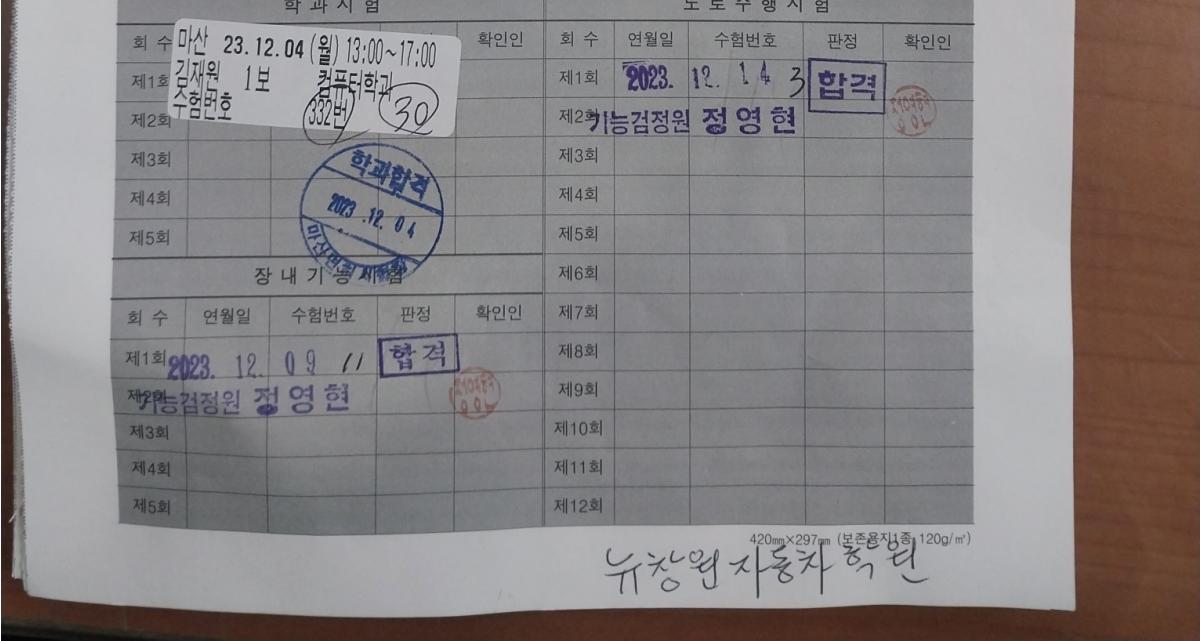 학과시험
회 수
확인인
마산 23.12.04 (월) 13:00~17:00
김재원 1보 컴퓨터학과
수험번호 332번 30
제1회
제2회
제3회
제4회
제5회
학과합격
2023.12.04
장내기능시험
회 수 연월일 수험번호 판정 확인인
제1회 2023. 12. 09 11 합격
제2회 기능검정원 정영현
제3회
제4회
제5회
도로주행시험
회 수 연월일 수험번호 판정 확인인
제1회 2023. 12. 14 3 합격
제2회 기능검정원 정영현
제3회
제4회
제5회
제6회
제7회
제8회
제9회
제10회
제11회
제12회
420㎜×297㎜ (보존용지1종 120g/㎡)
뉴창원자동차학원